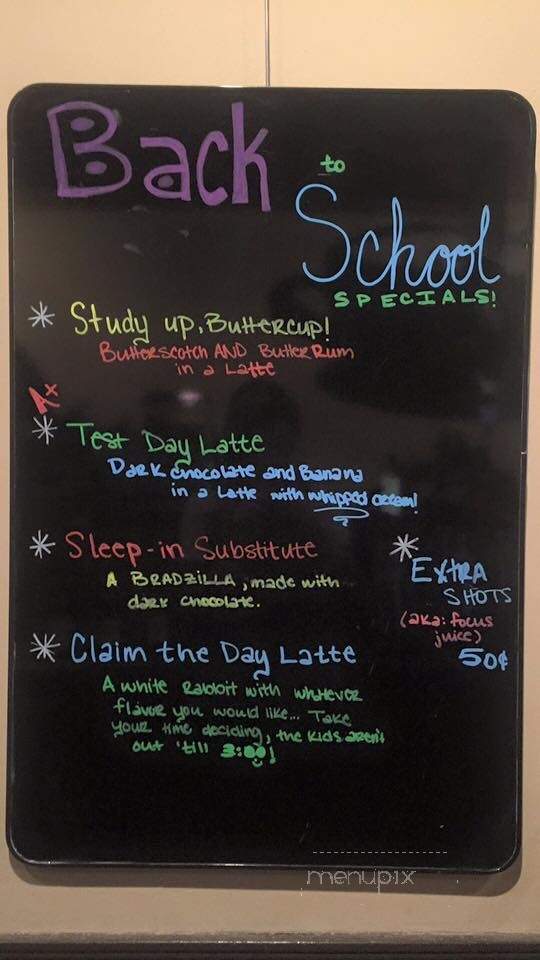 Back
to
School
SPECIALS!
* Study up, Buttercup!
Butterscotch AND Butter Rum
in a Latte
A+
* Test Day Latte
Dark chocolate and Banana
in a Latte with whipped cream!
* Sleep-in Substitute
A BRADZILLA, made with
dark chocolate.
* EXTRA
SHOTS
(aka: focus
juice)
50¢
* Claim the Day Latte
A white Rabbit with whatever
flavor you would like... Take
your time deciding, the kids aren't
out 'till 3:00!
menupix